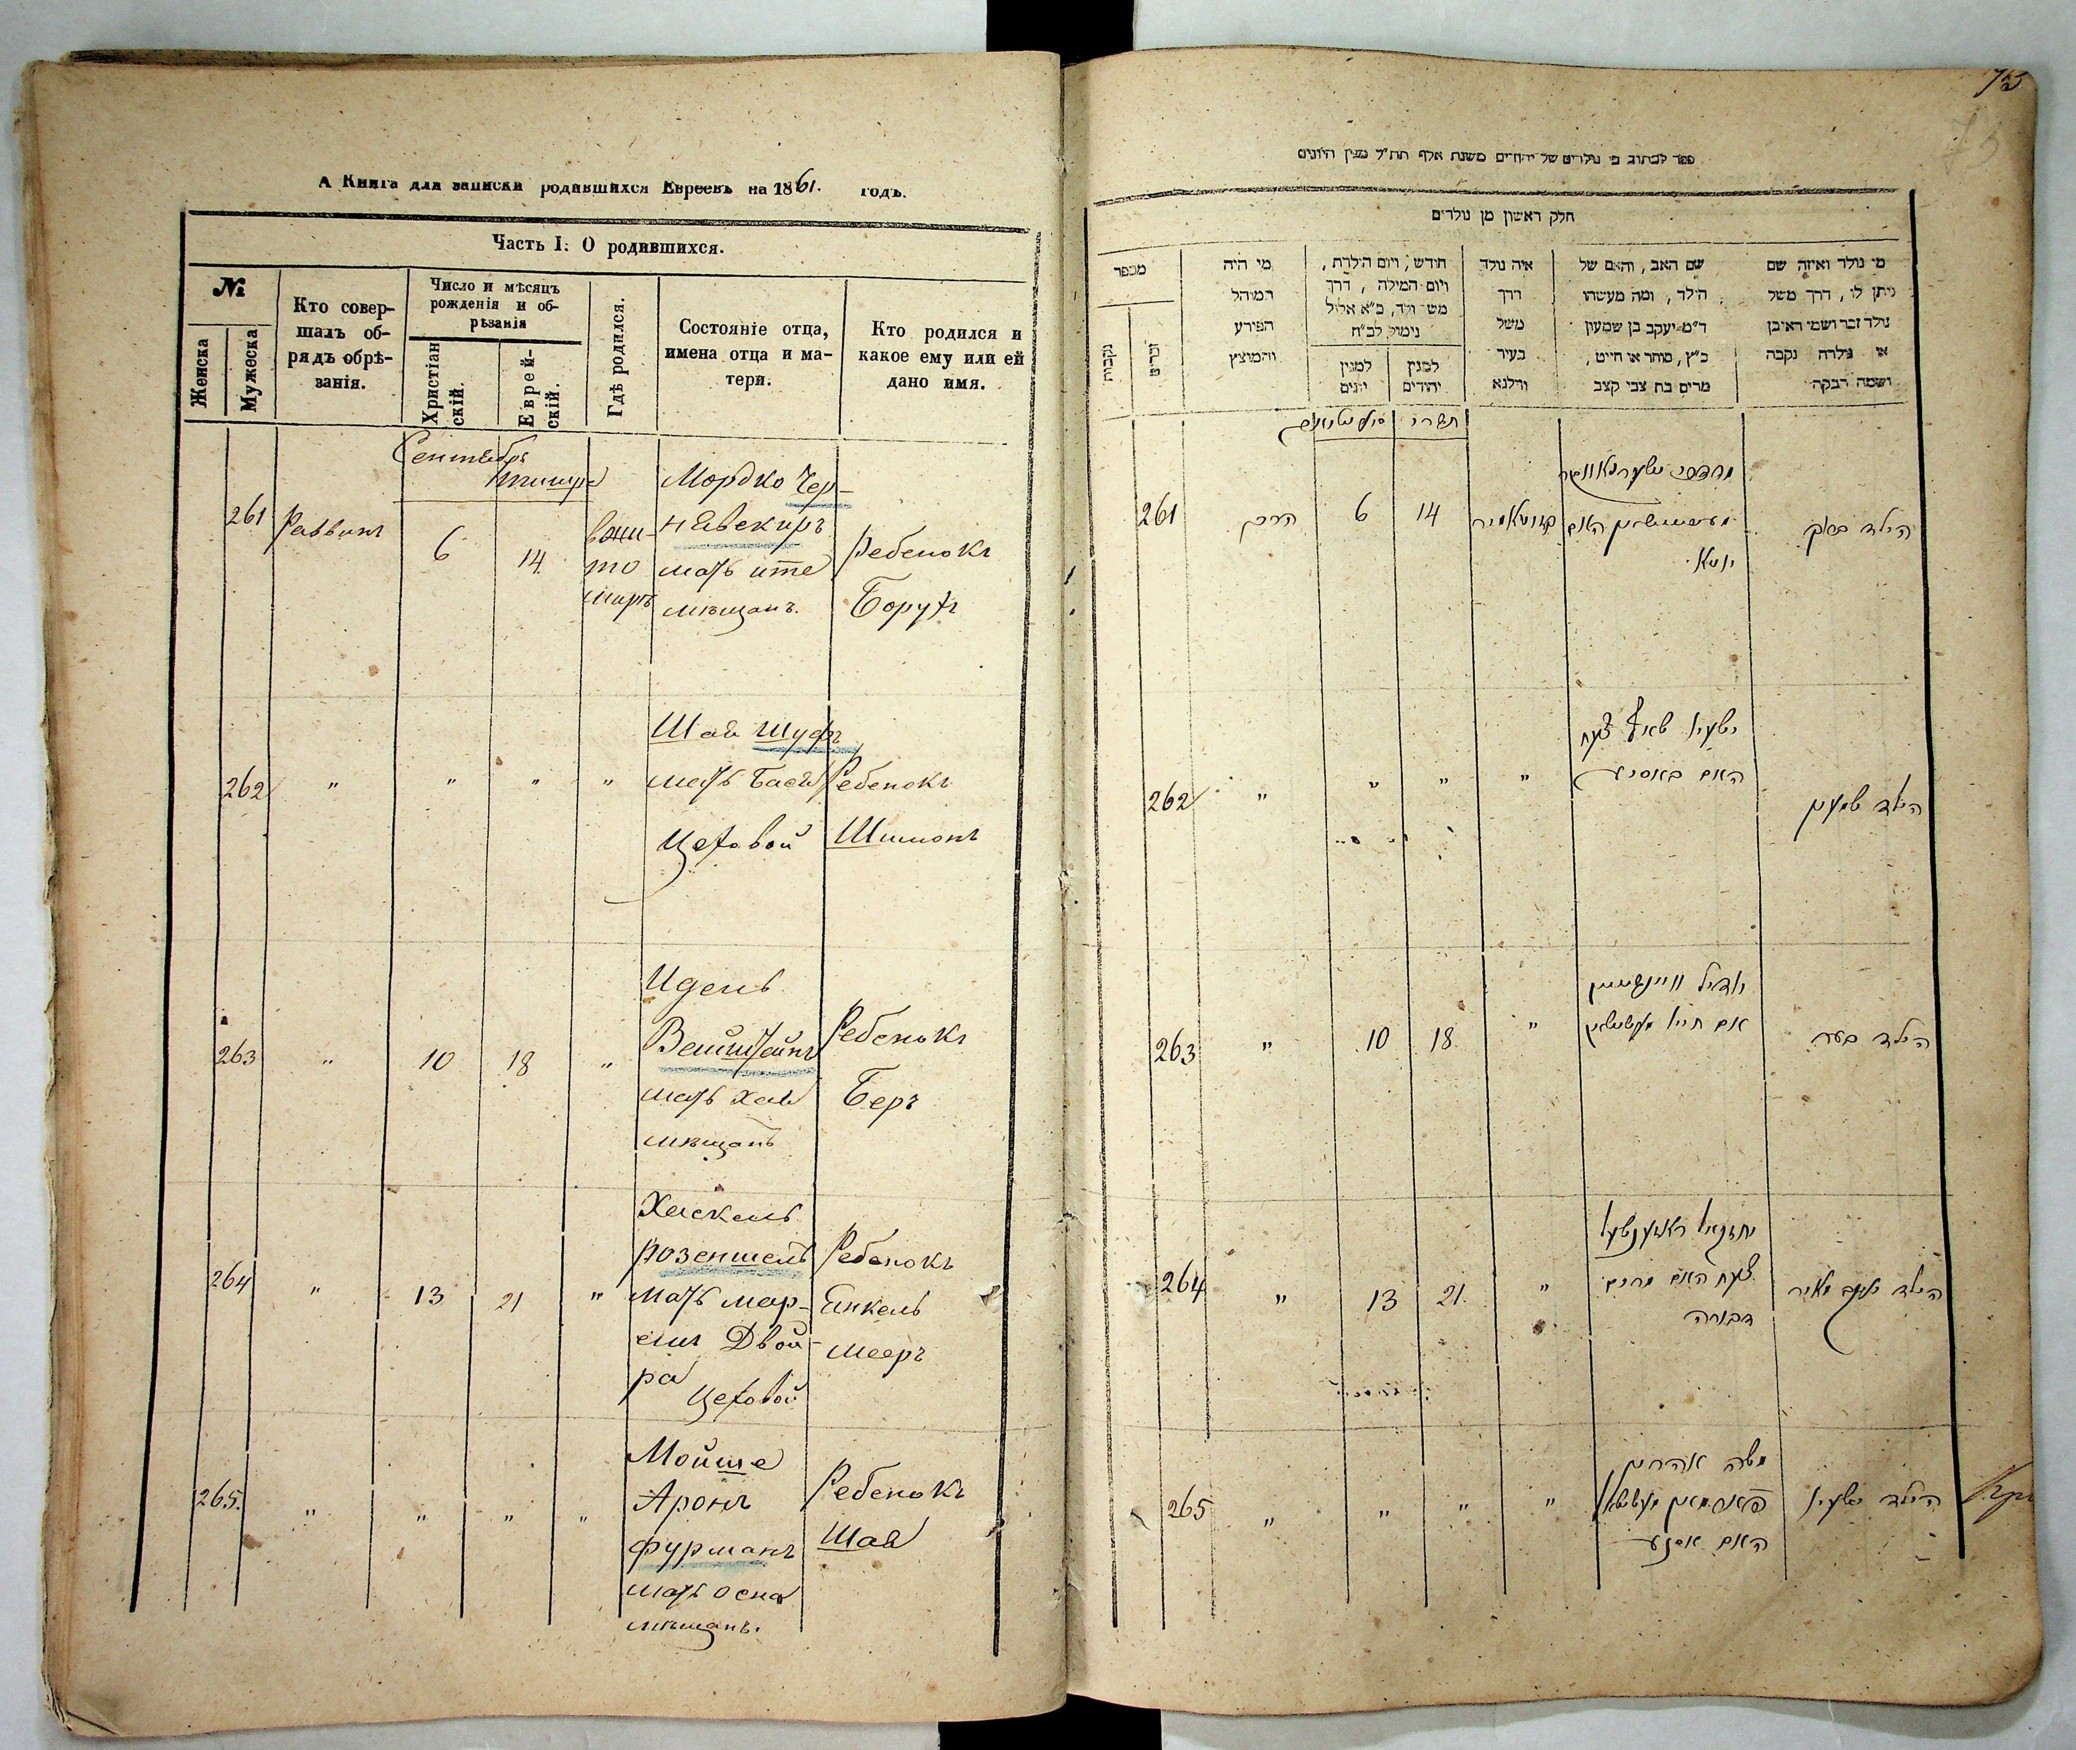 А Книга для записки родившихся Евреевъ на 1861. годъ.
Часть I. О родившихся.
№
Женска
Мужеска
Кто совер-
шалъ об-
рядъ обрѣ-
занія.
Число и мѣсяцъ
рожденія и об-
рѣзанія
Христіан
скій.
Еврей-
скій.
Гдѣ родился.
Состояніе отца,
имена отца и ма-
тери.
Кто родился и
какое ему или ей
дано имя.
Сентябрь
261
Раввинъ
6
14
Мордко Чер-
мать
мѣщанъ.
Ребенокъ
Борухъ
262
"
"
"
"
Шая Шуфъ
мать Бася
Цеховой
Ребенокъ
Шимонъ
263
"
10
18
"
Идель
Вейнштейнъ
мать Хая
мѣщанъ
Ребенокъ
Беръ
264
"
13
21
"
Хаскель
Розеншель
мать Мар-
емъ Двой-
ра
Цеховой
Ребенокъ
Янкель
Мееръ
265.
"
"
"
"
Мойше
Аронъ
Фурманъ
мать Осна
мѣщанъ.
Ребенокъ
Шая
75
ספר לכתוב בו נולדים של יהודים משנת אלף תת"ל מנין היונים
חלק ראשון מן נולדים
מספר
נקבות
זכרים
מי היה
המוהל
הפורע
והמוצץ
חודש, ויום הולדת,
ויום המילה, דרך
משל ולד, כ"א אלול
נימול לכ"ח
למנין
יונים
למנין
יהודים
איה נולד
דרך
משל
בעיר
ווילנא
שם האב, והאם של
הילד, ומה מעשהו
ד"מ יעקב בן שמעון
כ"ץ, סוחר או חייט,
מרים בת צבי קצב
מי נולד ואיזה שם
ניתן לו, דרך משל
נולד זכר ושמו ראובן
או נולדה נקבה
ושמה רבקה
תשרי
261
הרב
6
14
מרדכי
האם
הילד
262
"
"
"
"
ישעיו
האם באסיע
הילד שמעון
263
"
10
18
"
יודיל וויינשטיין
אם חייא
הילד בער
264
"
13
21
"
יחזקאל
האם מרים
דבורה
הילד יעקב מאיר
265
"
"
"
"
משה אהרון
האם אסנע
הילד ישעיו